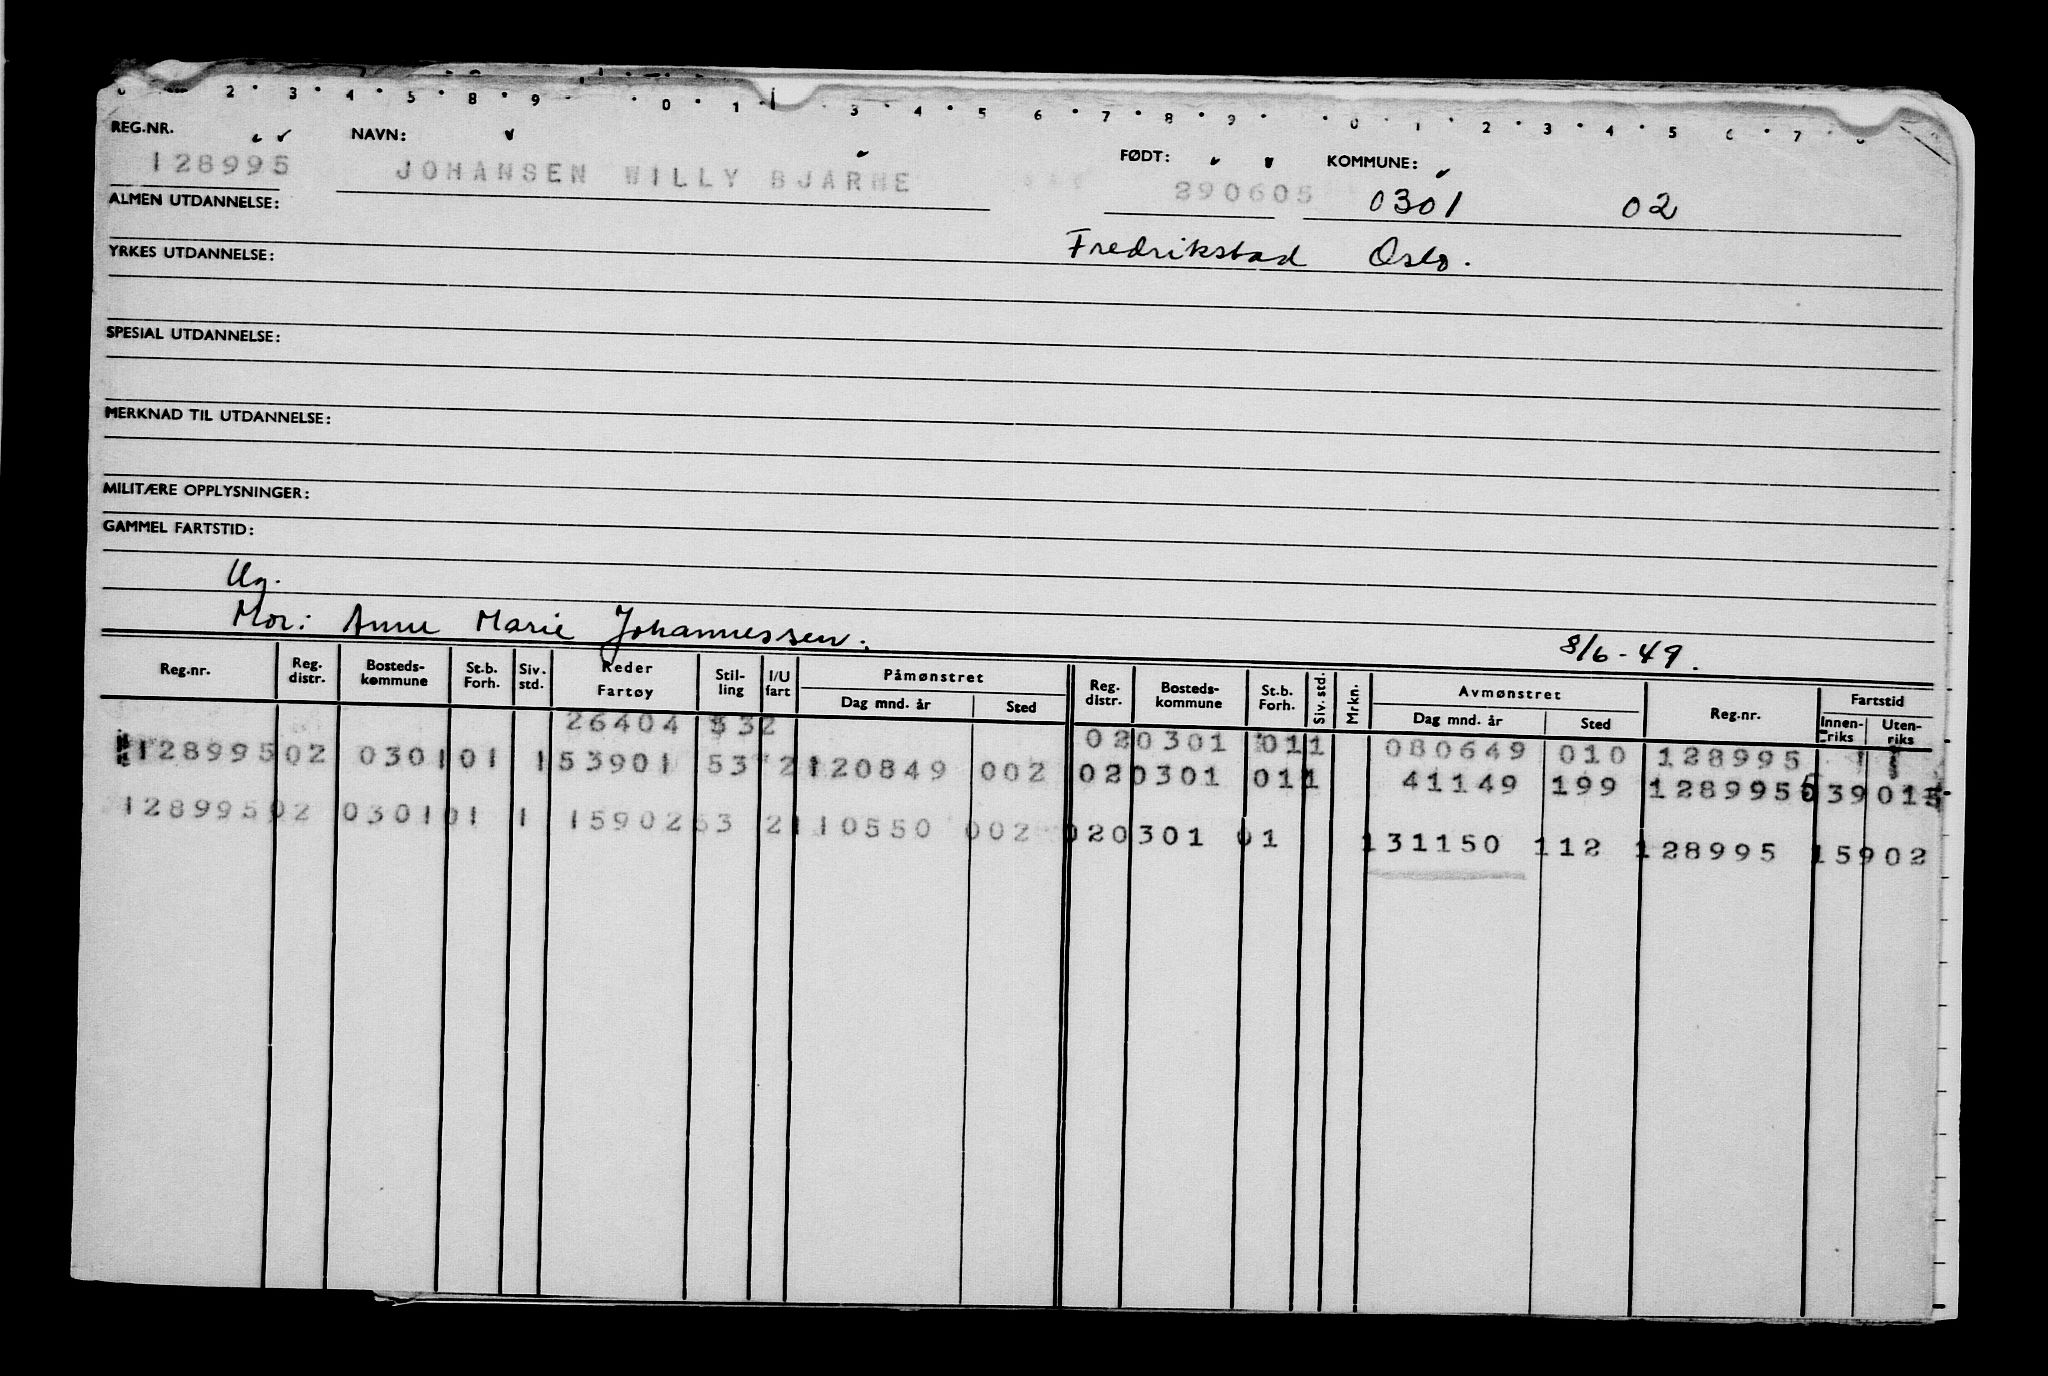 2 3 4 5 8 9 0 1 3 4 5 6 7 8 9 0 1 2 3 4 5 6 7 8
REG.NR. NAVN: FØDT: KOMMUNE:
128995 JOHANSEN WILLY BJARNE 290605 0301 02
ALMEN UTDANNELSE:
Fredrikstad Oslo.
YRKES UTDANNELSE:
SPESIAL UTDANNELSE:
MERKNAD TIL UTDANNELSE:
MILITÆRE OPPLYSNINGER:
GAMMEL FARTSTID:
Ug.
Mor: Anne Marie Johannessen. 8/6-49.
Reg.nr. Reg. distr. Bosteds-kommune St.b. Forh. Siv. std. Reder Fartøy Stil-ling I/U fart Påmønstret Dag mnd. år Sted Reg. distr. Bosteds-kommune St.b. Forh. Siv. std. Mrkn. Avmønstret Dag mnd. år Sted Reg.nr. Fartstid Innen-riks Uten-riks
26404 532 020301 011 080649 010 128995
128995 02 0301 01 1 53901 53 2 120849 002 020301 011 41149 199 128995 53901
128995 02 0301 01 1 15902 53 2 110550 002 020301 01 131150 112 128995 15902